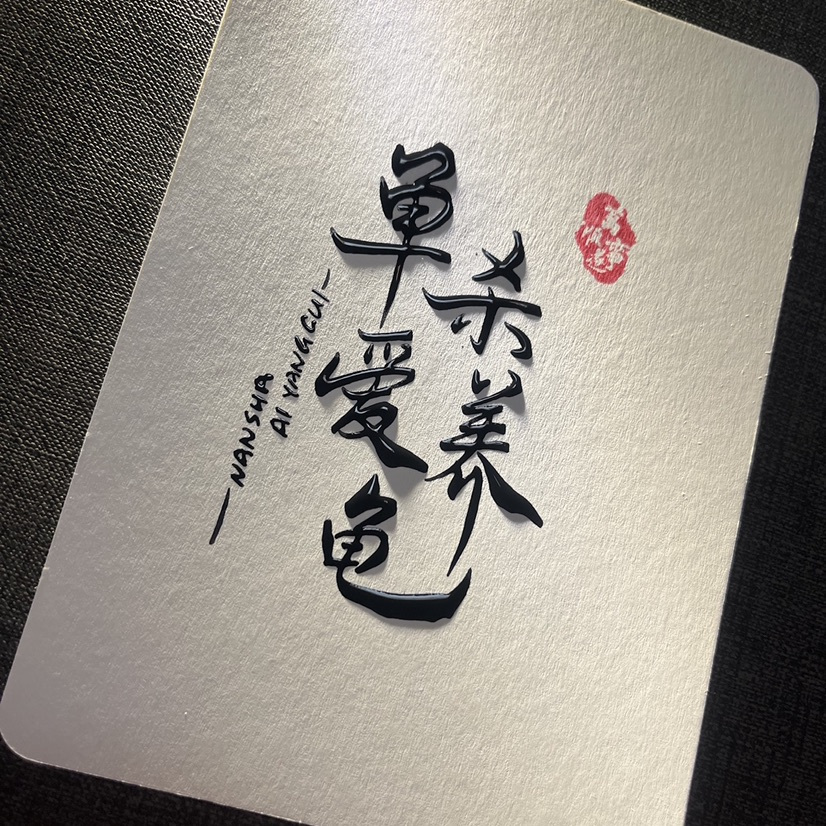 单杀爱养龟
—NANSHA
AI YANGGUI—